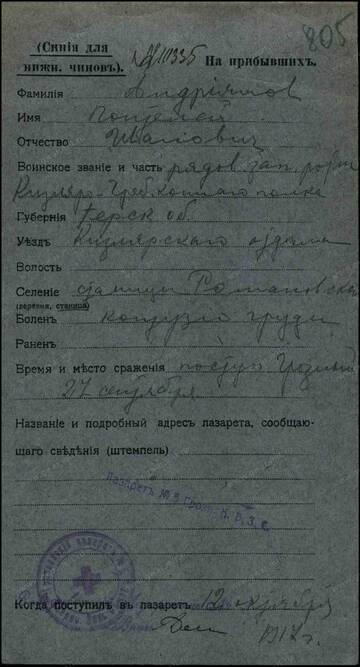 805
(Синія для
нижн. чиновъ). № 10335 На прибывшихъ.
Фамилія
Имя
Отчество Ивановичъ
Воинское званіе и часть рядов. зап. роты
Кизляро-Греб. коннаго полка
Губернія Терск об.
Уѣздъ Кизлярскаго отдѣла
Волость
Селеніе станицы
(деревня, станица)
Боленъ контузія груди
Раненъ
Время и мѣсто сраженія поступ. Грозный
27 сентября
Названіе и подробный адресъ лазарета, сообщаю-
щаго свѣдѣнія (штемпель)
Лазаретъ № 3 Гроз.
Когда поступилъ въ лазаретъ 12 октября
1917 г.